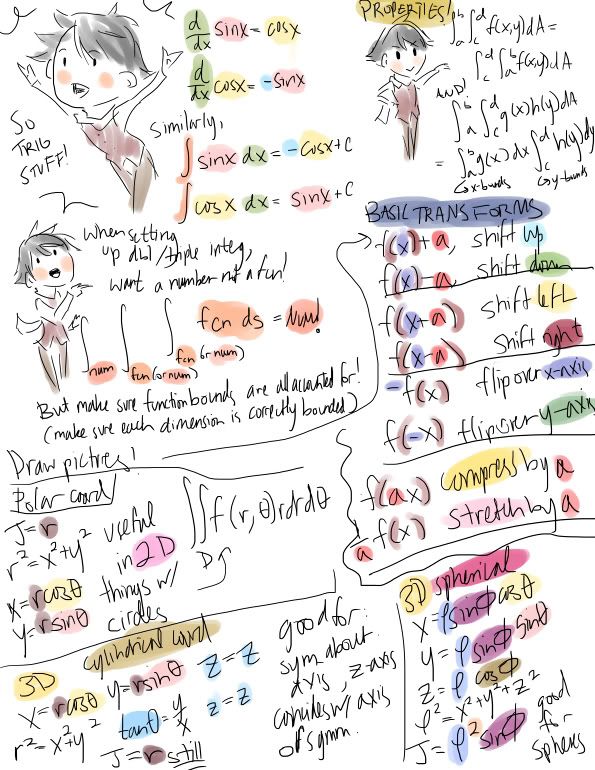 SO
TRIG
STUFF!
d/dx sinx = cosx
d/dx cosx = -sinx
Similarly,
∫ sinx dx = -cosx + C
∫ cosx dx = sinx + C
PROPERTIES!
∫_a^b ∫_c^d f(x,y)dA =
∫_c^d ∫_a^b f(x,y)dA
AND!
∫_a^b ∫_c^d g(x)h(y)dA
= ∫_a^b g(x)dx ∫_c^d h(y)dy
↳x-bounds ↳y-bounds
When setting
up dbl/triple integ,
want a number not a fcn!
∫_num ∫_fcn (or num) ∫_fcn (or num) fcn ds = Num!
But make sure function bounds are all accounted for!
(make sure each dimension is correctly bounded)
Draw pictures!
BASIC TRANSFORMS
f(x)+a, shift up
f(x)-a, shift down
f(x+a) shift left
f(x-a) shift right
-f(x) flip over x-axis
f(-x) flip over y-axis
f(ax) compress by a
a f(x) stretch by a
Polar coord
J=r
r²=x²+y²
x=rcosθ
y=rsinθ
useful
in 2D
things w/
circles
∫∫ f(r,θ)rdrdθ
D
cylindrical coord
3D
x=rcosθ
r²=x²+y²
y=rsinθ
tanθ=y/x
J=r still
z=z
z=z
good for:
sym about
axis, z-axis
coincides w/ axis
of symm.
3D spherical
x=ρsinϕcosθ
y=ρsinϕsinθ
z=ρcosϕ
ρ²=x²+y²+z²
J=ρ²sinϕ
good
for
spheres